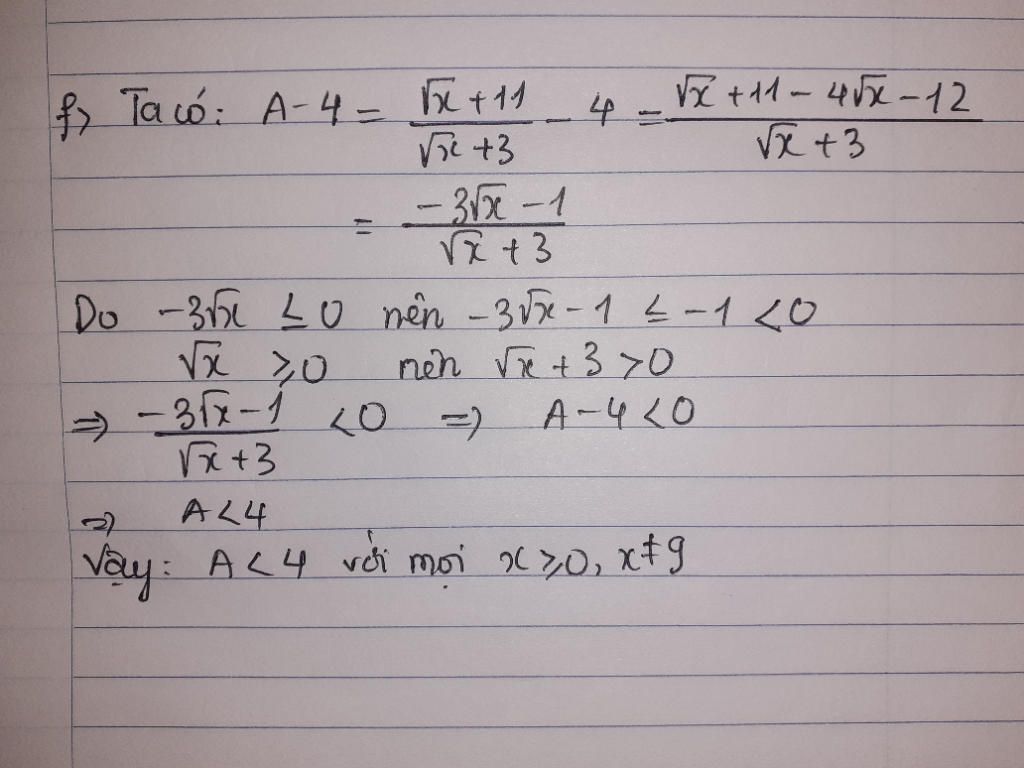 f) Ta có: A - 4 = (√x + 11)/(√x + 3) - 4 = (√x + 11 - 4√x - 12)/(√x + 3)
= (-3√x - 1)/(√x + 3)
Do -3√x ≤ 0 nên -3√x - 1 ≤ -1 < 0
√x ≥ 0 nên √x + 3 > 0
⇒ (-3√x - 1)/(√x + 3) < 0 ⇒ A - 4 < 0
⇒ A < 4
Vậy: A < 4 với mọi x ≥ 0, x ≠ 9